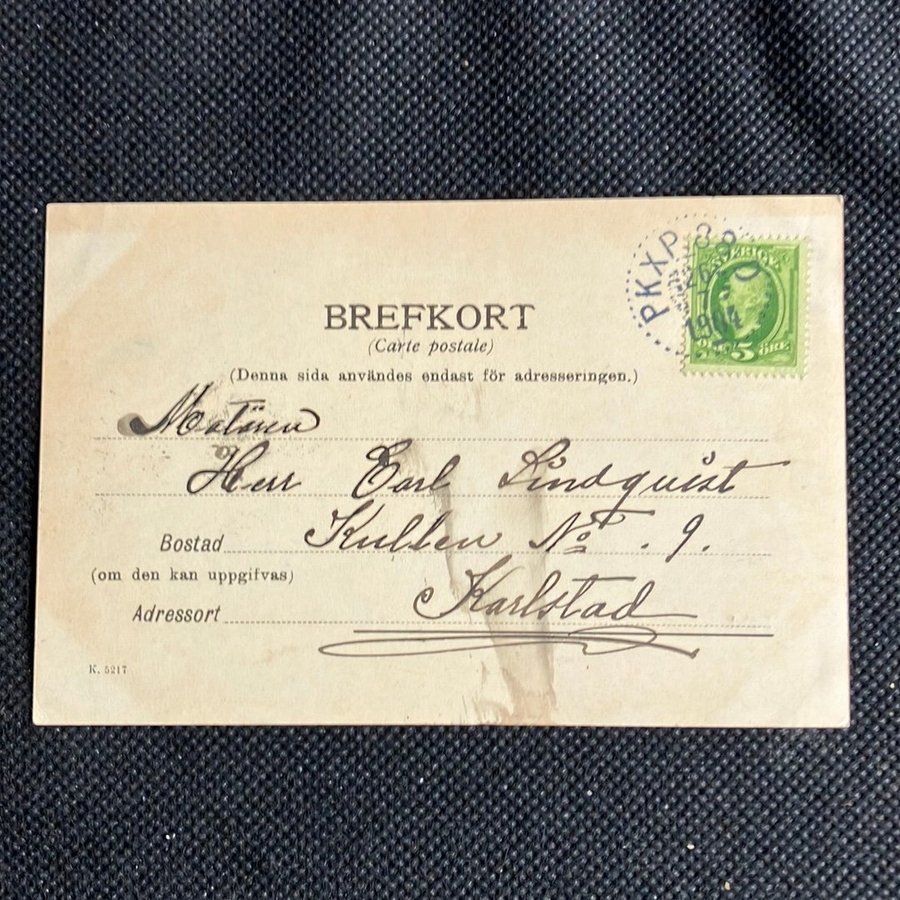 PKXP 3
SVERIGE
1904
5 ÖRE
BREFKORT
(Carte postale)
(Denna sida användes endast för adresseringen.)
Herr Carl Lindquist
Bostad Kullen No. 9.
(om den kan uppgifvas)
Adressort Karlstad
K. 5217